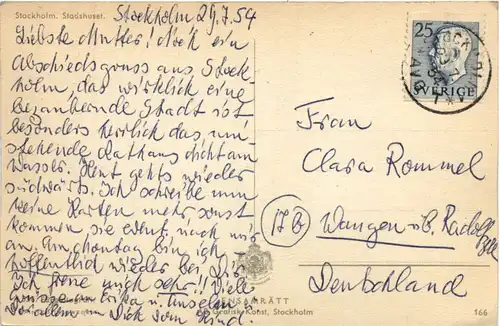 Stockholm. Stadshuset.
Stockholm 29.7.54
Liebste Mutter! Noch ein
Abschiedsgruss aus Stock-
holm, das wirklich eine
bezaubernde Stadt ist
besonders herrlich das
stehende Rathaus dicht am
Wasser. Heut gehts wieder
südwärts. Ich schreibe nun
keine Karten mehr, sonst
kommen sie event. nach mir
an. Am Montag bin ich
hoffentlich wieder bei Dir
Ich freue mich sehr!! Viele
Grüsse Erika u. Anselm
Vor allem Dich vom Kind.
25
SVERIGE
Frau
Clara Rommel
(17B) Wangen üb. Radolfzell
Deutschland
ENSAMRÄTT
Grafisk Konst, Stockholm
166